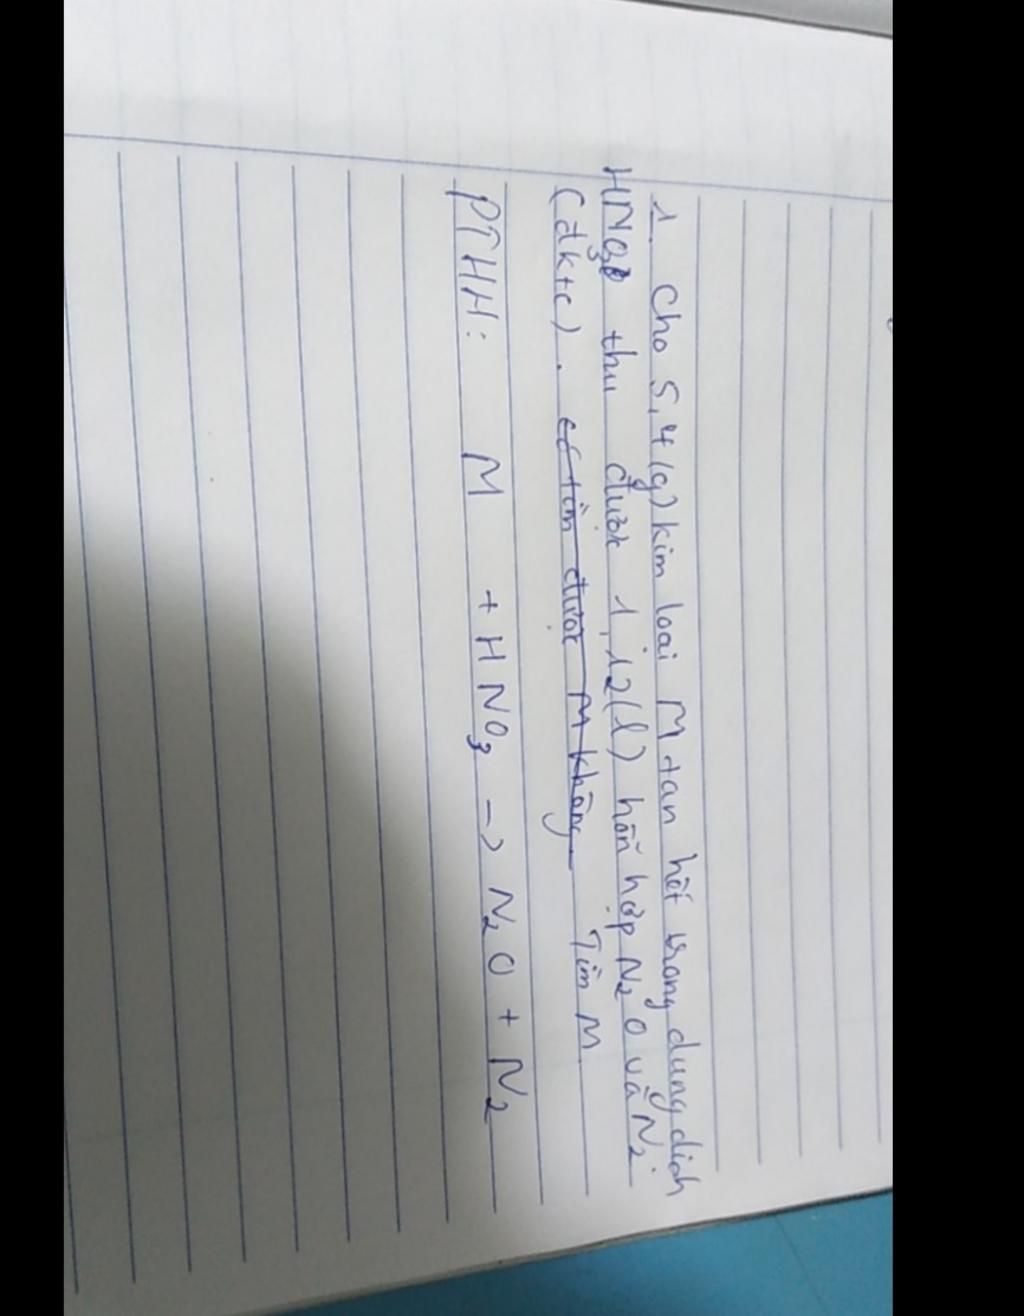 1. Cho 5,4(g) kim loại M tan hết trong dung dịch
HNO3 thu được 1,12(l) hỗn hợp N2O và N2
(đktc). có tìm được M không Tìm M
PTHH: M + HNO3 -> N2O + N2